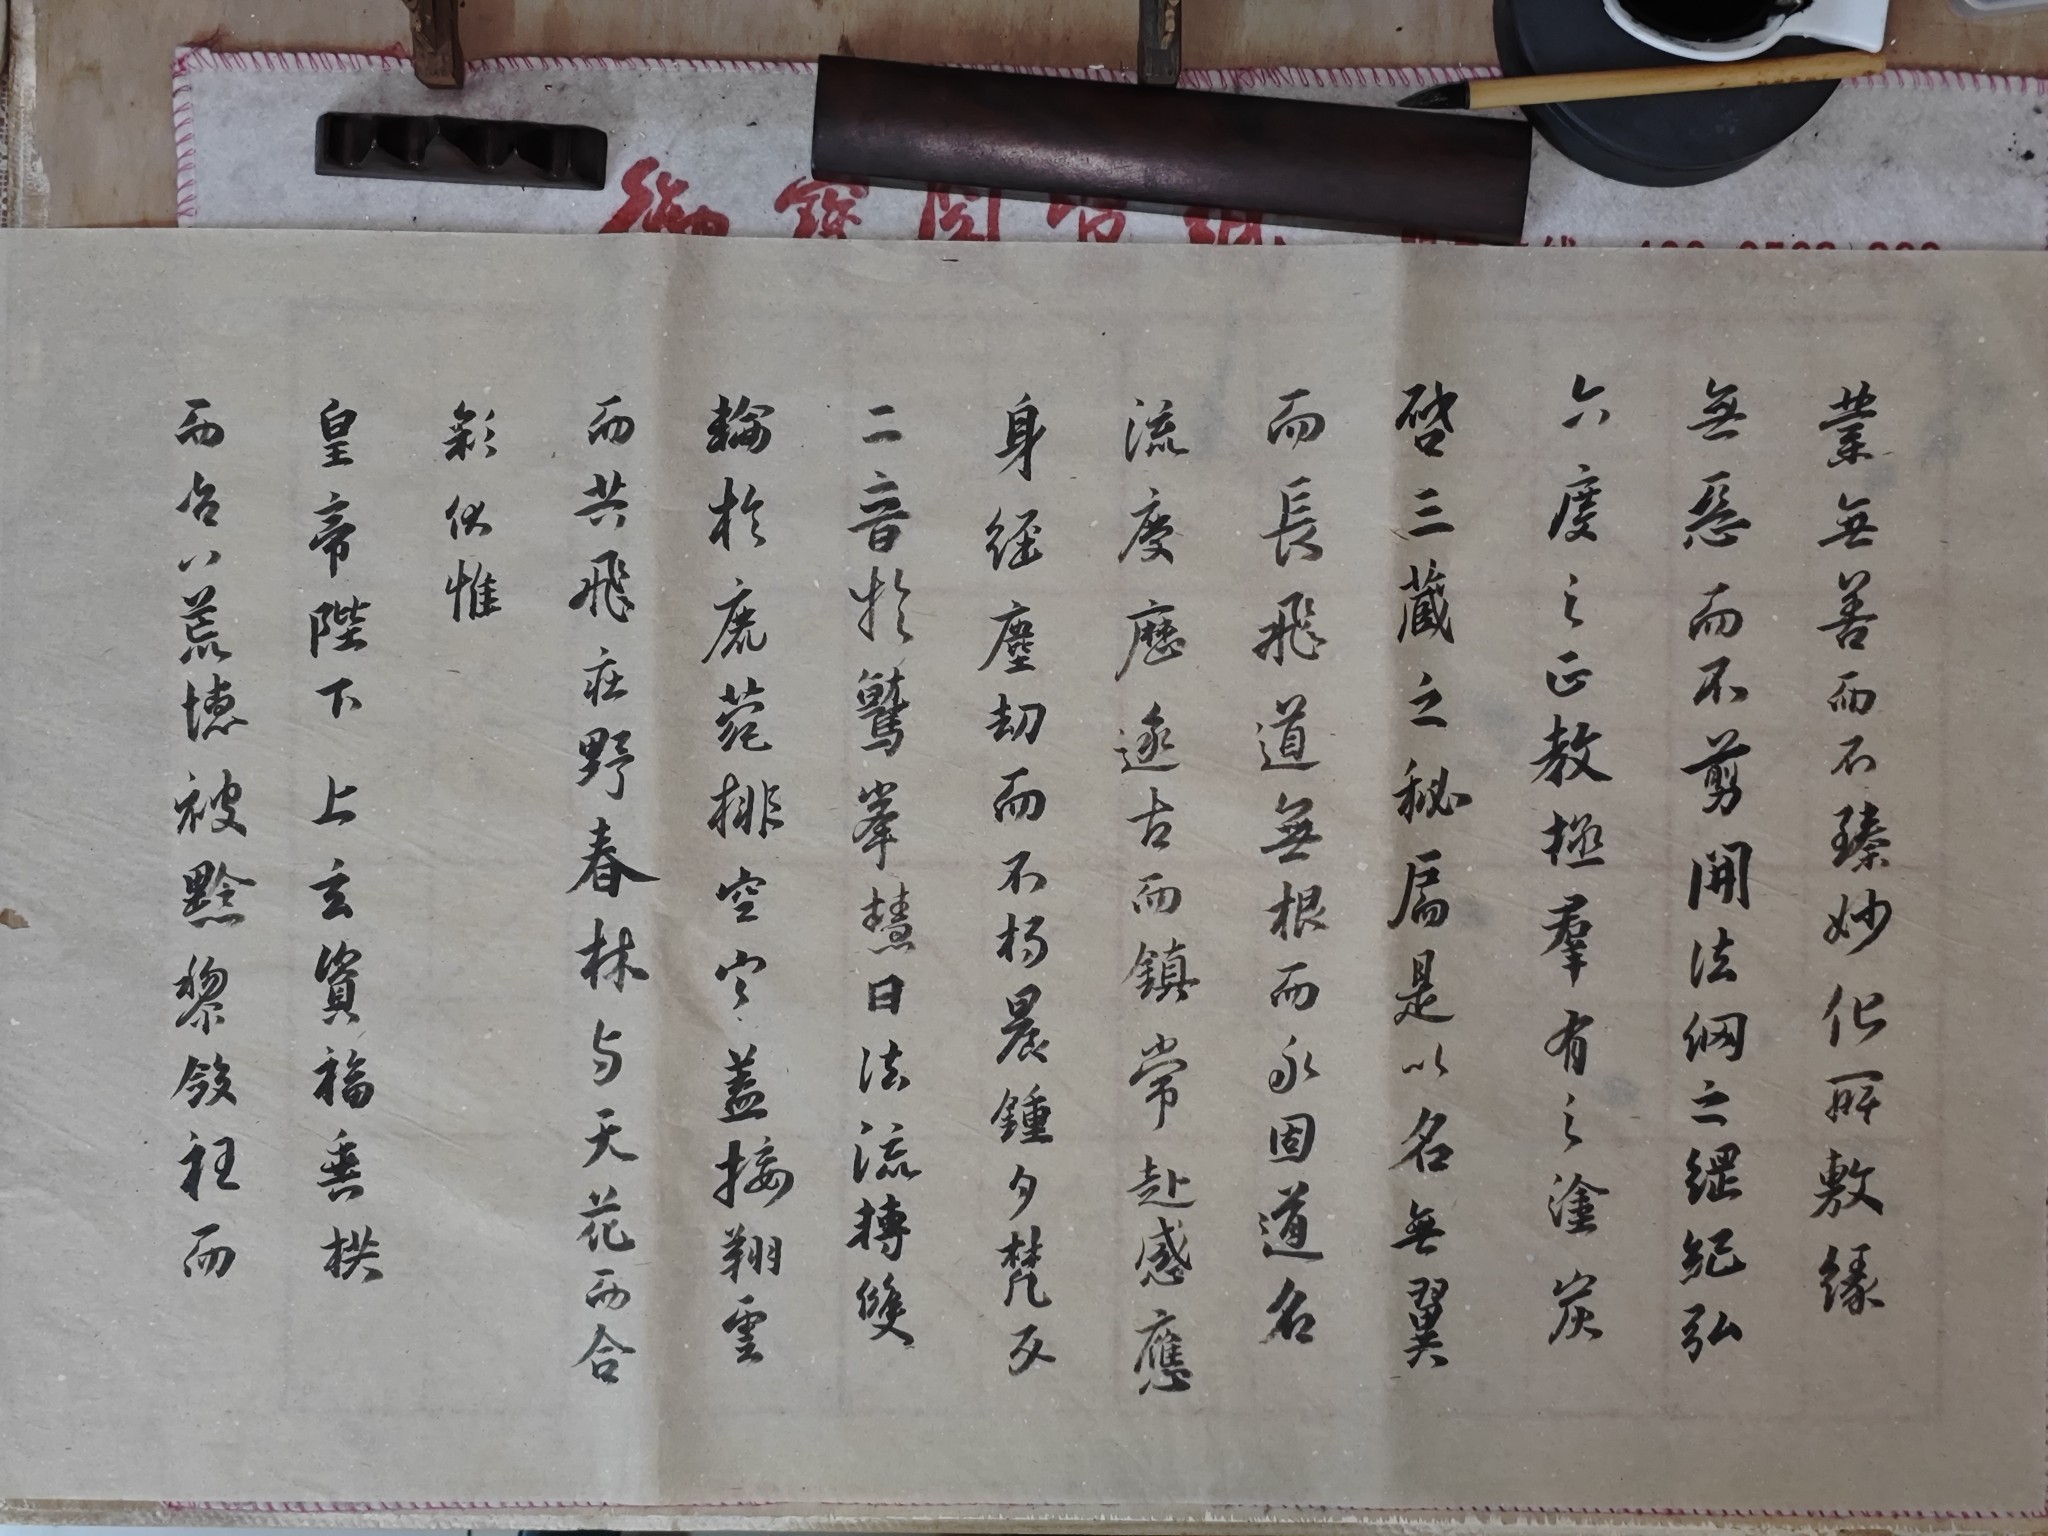 業無善而不臻妙化所敷緣
無惡而不剪開法網之綱紀弘
六度之正教拯羣有之塗炭
啓三藏之秘扃是以名無翼
而長飛道無根而永固道名
流慶歷遂古而鎮常赴感應
身經塵劫而不朽晨鍾夕梵交
二音於鷲峯慧日法流轉雙
輪於鹿菀排空寶蓋接翔雲
而共飛莊野春林与天花而合
彩伏惟
皇帝陛下上玄資福垂拱
而治八荒德被黔黎斂衽而